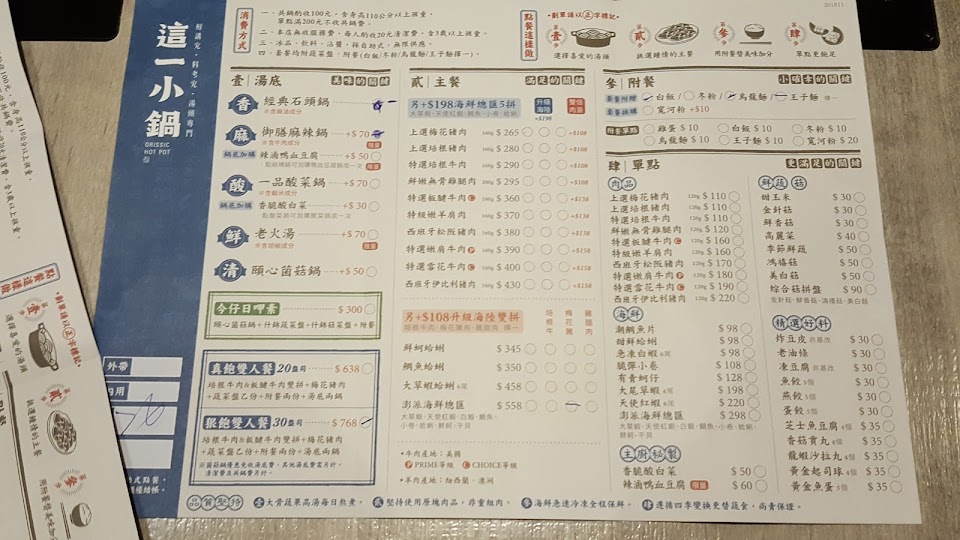 201811
鮮講究・料考究・湯頭專門
這一小鍋
ORISSIC
HOT POT
消費方式
一、共鍋酌收100元，食身高110公分以上孩童，
單點滿200元不收共鍋費。
二、本店無收服務費，每人酌收20元清潔費，含3歲以上孩童。
三、冰品、飲料、沾醬，採自助式，無限供應。
四、套餐均附蔬菜盤、附餐(白飯/冬粉/烏龍麵/王子麵擇一)。
點餐這樣做
・劃單請以正字標記・
第壹步
選擇喜愛的湯頭
第貳步
挑選鍾情的主餐
第參步
用附餐替美味加分
第肆步
單點更飽足
壹 湯底
美味的關鍵
香 經典石頭鍋
※含麻油成分
麻 御膳麻辣鍋 +$70
※含牛肉成分
限量
鍋底加購 辣滷鴨血豆腐 +$50
點麻辣鍋可加購鴨血豆腐鍋底一次
限量
酸 一品酸菜鍋 +$70
※含蝦米成分
鍋底加購 香脆酸白菜 +$30
點酸菜鍋可加購酸菜鍋底一次
鮮 老火湯 +$70
※含胡椒成分
限量
清 頤心菌菇鍋 +$50
今仔日呷素 $300
頤心菌菇鍋+什錦蔬菜盤+什錦菇菜盤+附餐
真飽雙人餐 20盎司 $638
培根牛肉&板腱牛肉雙拼+梅花豬肉
+蔬菜盤乙份+附餐兩份+湯底兩鍋
狠飽雙人餐 30盎司 $768
培根牛肉&板腱牛肉雙拼+梅花豬肉
+蔬菜盤乙份+附餐兩份+湯底兩鍋
※菌菇鍋優惠免收湯底費，其他湯底費需另計。
清潔費及共鍋費另計。
貳 主餐
滿足的關鍵
另+$198海鮮總匯5拼
大草蝦・天使紅蝦・白蝦・鯛魚・小卷・蛤蜊
升級海陸
+$198
雙倍肉量
上選梅花豬肉 160g $265 +$108
上選培根豬肉 160g $280 +$108
特選培根牛肉 160g $290 +$108
鮮嫩無骨雞腿肉 200g $295 +$108
特選板腱牛肉 C 160g $360 +$138
特級嫩羊肩肉 160g $370 +$138
西班牙松阪豬肉 160g $380 +$138
特選嫩肩牛肉 P 160g $390 +$158
特選雪花牛肉 C 160g $400 +$158
西班牙伊比利豬肉 160g $430 +$158
另+$108升級海陸雙拼
培根牛肉、梅花豬肉、雞腿肉 擇一
培根牛
梅花豬
雞腿肉
鮮蚵蛤蜊 $345
鯛魚蛤蜊 $350
大草蝦蛤蜊 6尾 $458
澎派海鮮總匯 $558
大草蝦・天使紅蝦・白蝦・鯛魚・
小卷・蛤蜊・鮮蚵・干貝
・牛肉產地：美國
P PRIME等級 C CHOICE等級
・羊肉產地：紐西蘭、澳洲
參 附餐
小確幸的關鍵
套餐附贈 白飯/ 冬粉/ 烏龍麵/ 王子麵 擇一
套餐換購 寬河粉 +$10
附餐單點 雞蛋 $10 白飯 $10 冬粉 $20
烏龍麵 $10 王子麵 $10 寬河粉 $20
肆 單點
更滿足的關鍵
肉品
上選梅花豬肉 120g $110
上選培根豬肉 120g $110
特選培根牛肉 120g $110
鮮嫩無骨雞腿肉 $120
特選板腱牛肉 C 120g $160
特級嫩羊肩肉 120g $160
西班牙松阪豬肉 120g $170
特選嫩肩牛肉 P 120g $180
特選雪花牛肉 C 120g $190
西班牙伊比利豬肉 120g $220
海鮮
潮鯛魚片 $98
甜鮮蛤蜊 $98
急凍白蝦 6尾 $98
脆彈小卷 $108
有青蚵仔 $128
大尾草蝦 6尾 $198
天使紅蝦 6尾 $220
澎派海鮮總匯 $298
大草蝦・天使紅蝦・白蝦・鯛魚・小卷・蛤蜊・
鮮蚵・干貝
主廚秘製
香脆酸白菜 $50
辣滷鴨血豆腐 限量 $60
鮮蔬菇
甜玉米 $30
金針菇 $30
鮮香菇 $30
高麗菜 $40
季節鮮蔬 $50
鴻禧菇 $50
美白菇 $50
綜合菇拼盤 $90
金針菇・鮮香菇・鴻禧菇・美白菇
精選好料
炸豆皮 非基改 $30
老油條 $30
凍豆腐 非基改 $30
魚餃 5個 $30
燕餃 5個 $30
蛋餃 5個 $30
芝士魚豆腐 4個 $35
香菇貢丸 4個 $35
龍蝦沙拉丸 4個 $35
黃金起司球 4個 $35
黃金魚蛋 5個 $35
外帶
內用
品質堅持 壹 大骨蔬果高湯每日熬煮。 貳 堅持使用原塊肉品，非重組肉。 參 海鮮急速冷凍全程保鮮。 肆 遵循四季變換更替蔬食，尚青保證。